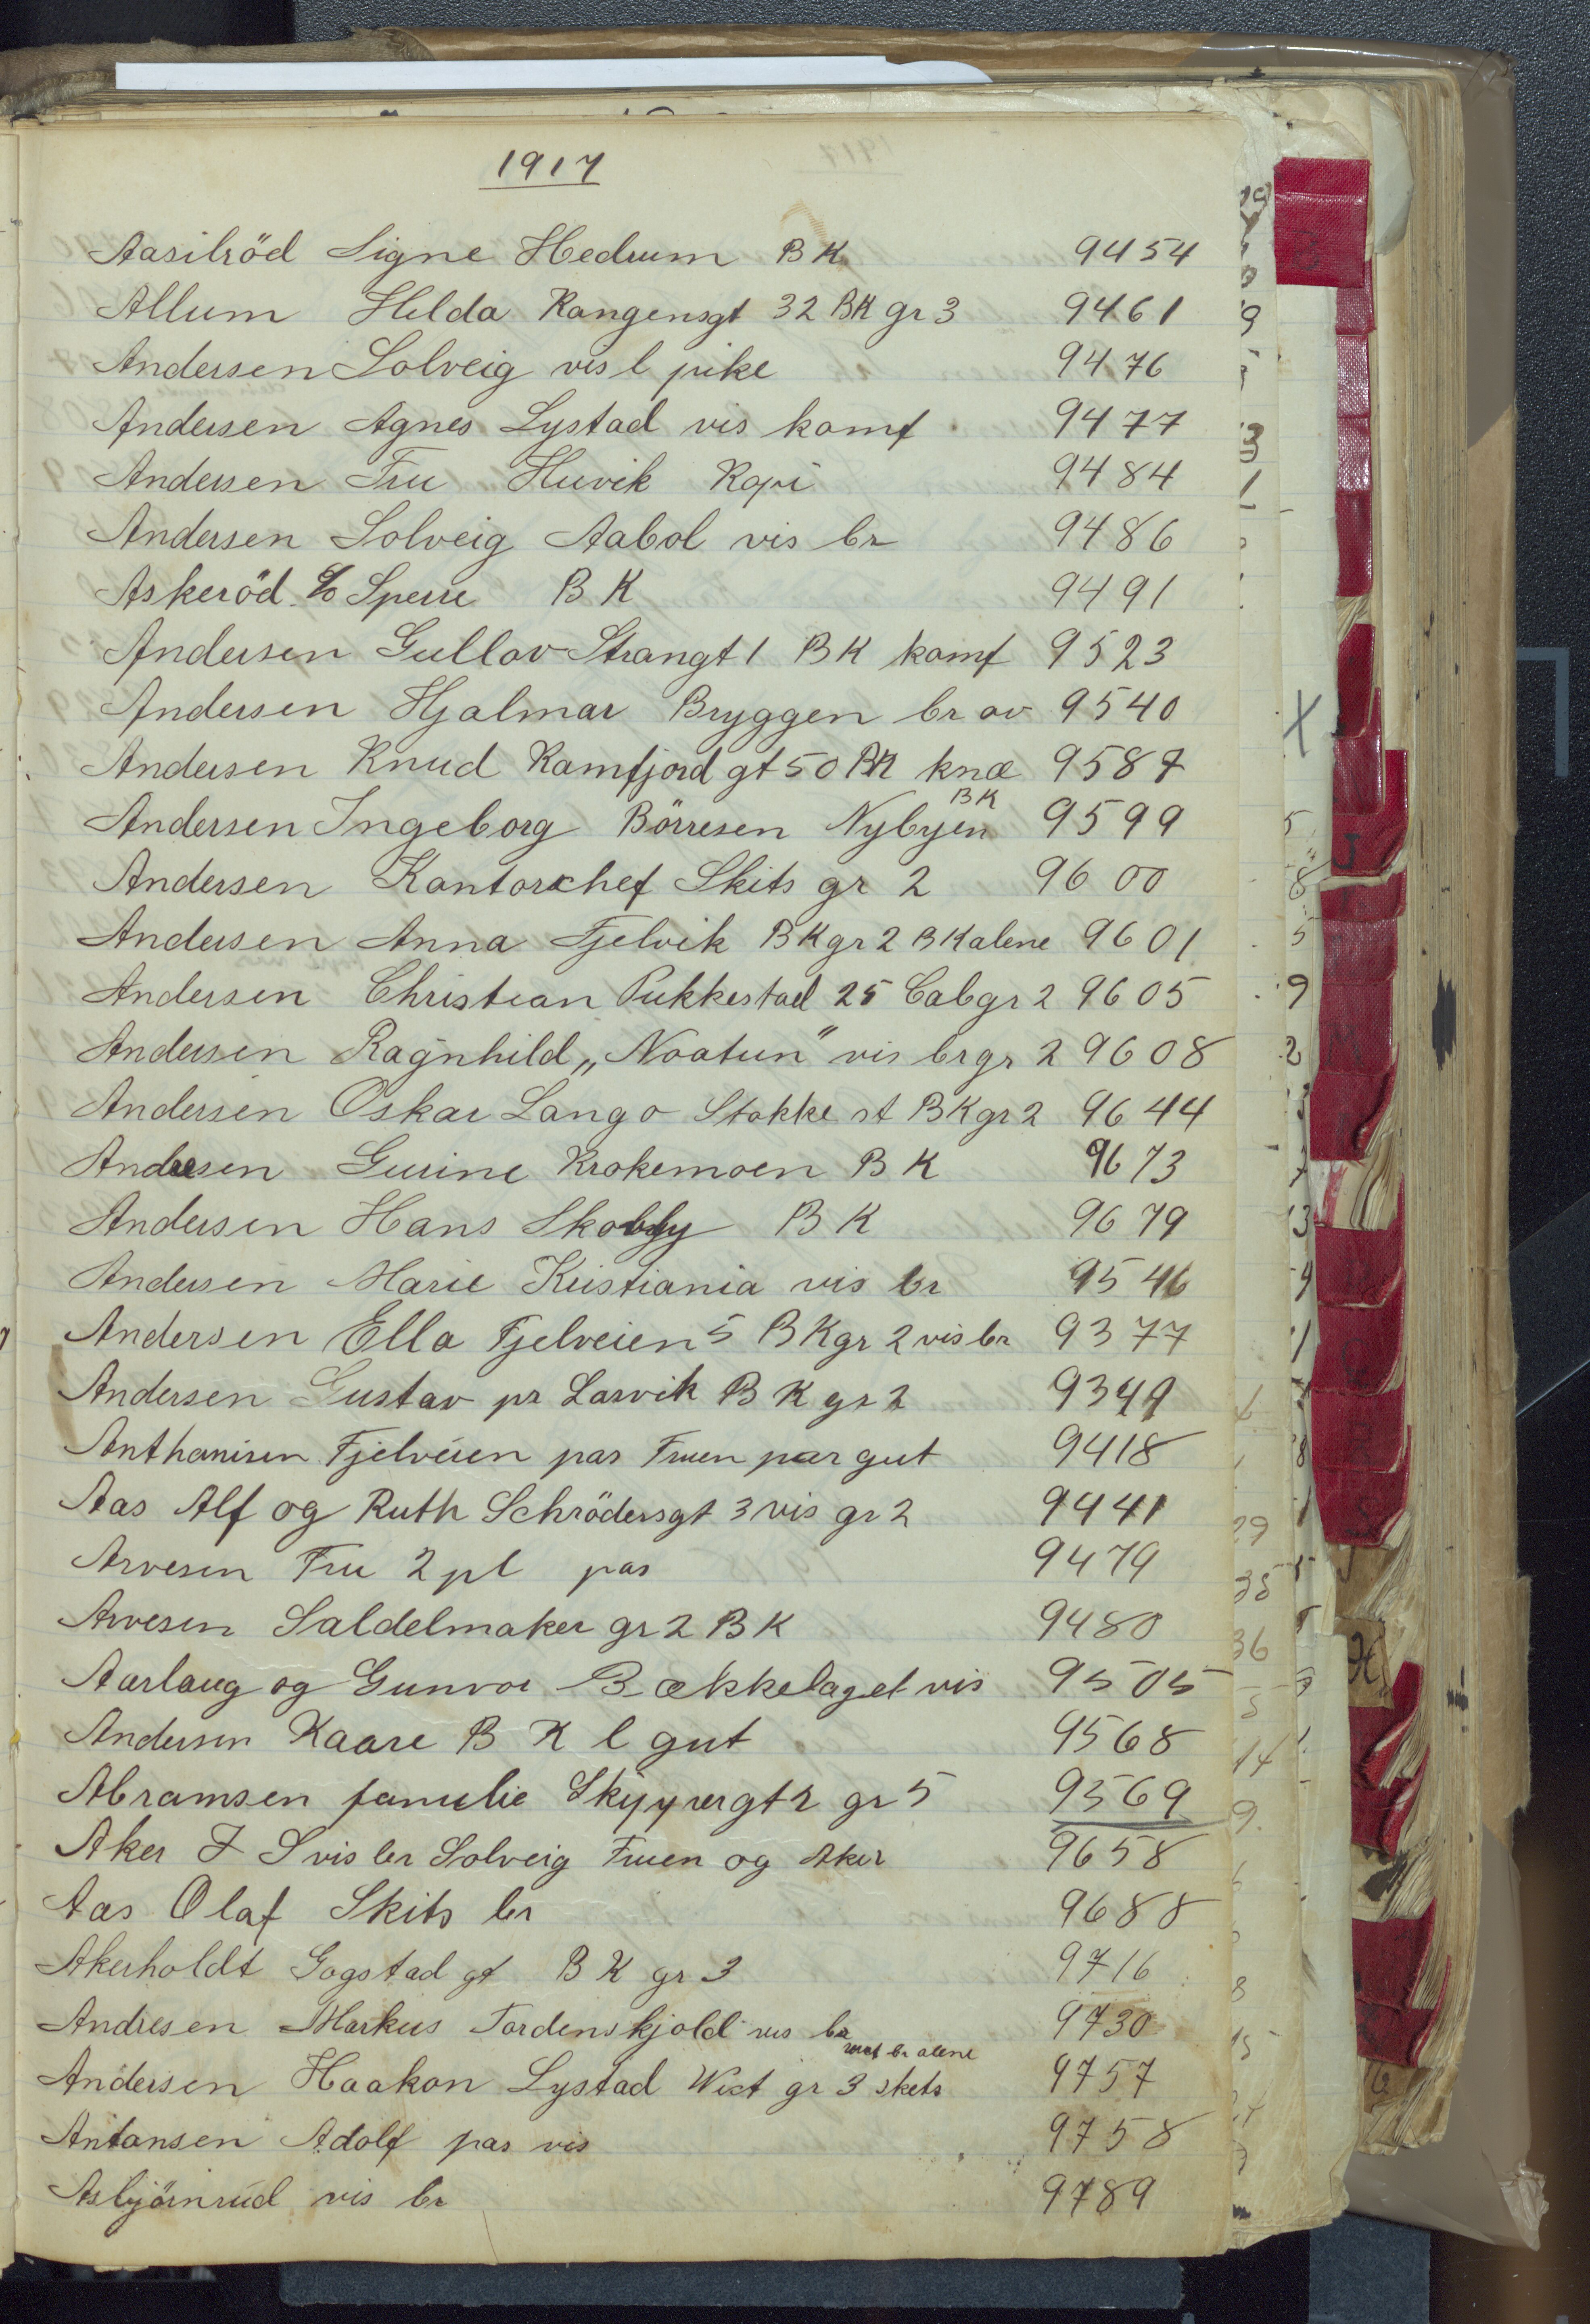 1917
Aasilröd Signe Hedrum BK 9454
Allum Hilda Kongensgt 32 BK gr 3 9461
Andersen Solveig vis l pike 9476
Andersen Agnes Lystad vis komf 9477
Andersen Fru Huvik Kopi 9484
Andersen Solveig Aabol vis br 9486
Askeröd c/o Sperre BK 9491
Andersen Gullov Strangt 1 BK komf 9523
Andersen Hjalmar Bryggen br av 9540
Andersen Knud Kamfjord gt 50 BK knæ 9587
Andersen Ingeborg Börresen Nybyen BK 9599
Andersen Kontorchef Skits gr 2 9600
Andersen Anna Fjelvik BK gr 2 BK alene 9601
Andersen Christian Pukkestad 25 Cab gr 2 9605
Andersen Ragnhild „Noatun" vis br gr 2 9608
Andersen Oskar Lango Stokke st BK gr 2 9644
Andresen Gurine Krokemoen BK 9673
Andersen Hans Skobly BK 9679
Andersen Marie Kristiania vis br 9546
Andersen Ella Fjelveien 5 BK gr 2 vis br 9377
Andersen Gustav pr Larvik BK gr 2 9349
Anthonisen Fjelveien pas Fruen par gut 9418
Aas Alf og Ruth Schrödersgt 3 vis gr 2 9441
Arvesen Fru 2 pl pas 9479
Arvesen Saldelmaker gr 2 BK 9480
Aarlaug og Gunvor Bækkelaget vis 9505
Andersen Kaare BK l gut 9568
Abramsen familie Skippergt 2 gr 5 9569
Aker I S vis br Solveig Fruen og Aker 9658
Aas Olaf Skits br 9688
Akerholdt Gogstad gt BK gr 3 9716
Andresen Markus Tordenskjold vis br 9730
vict br alene
Andersen Haakon Lystad Vict gr 3 skets 9757
Antonsen Adolf pas vis 9758
Asbjörnrud vis br 9789